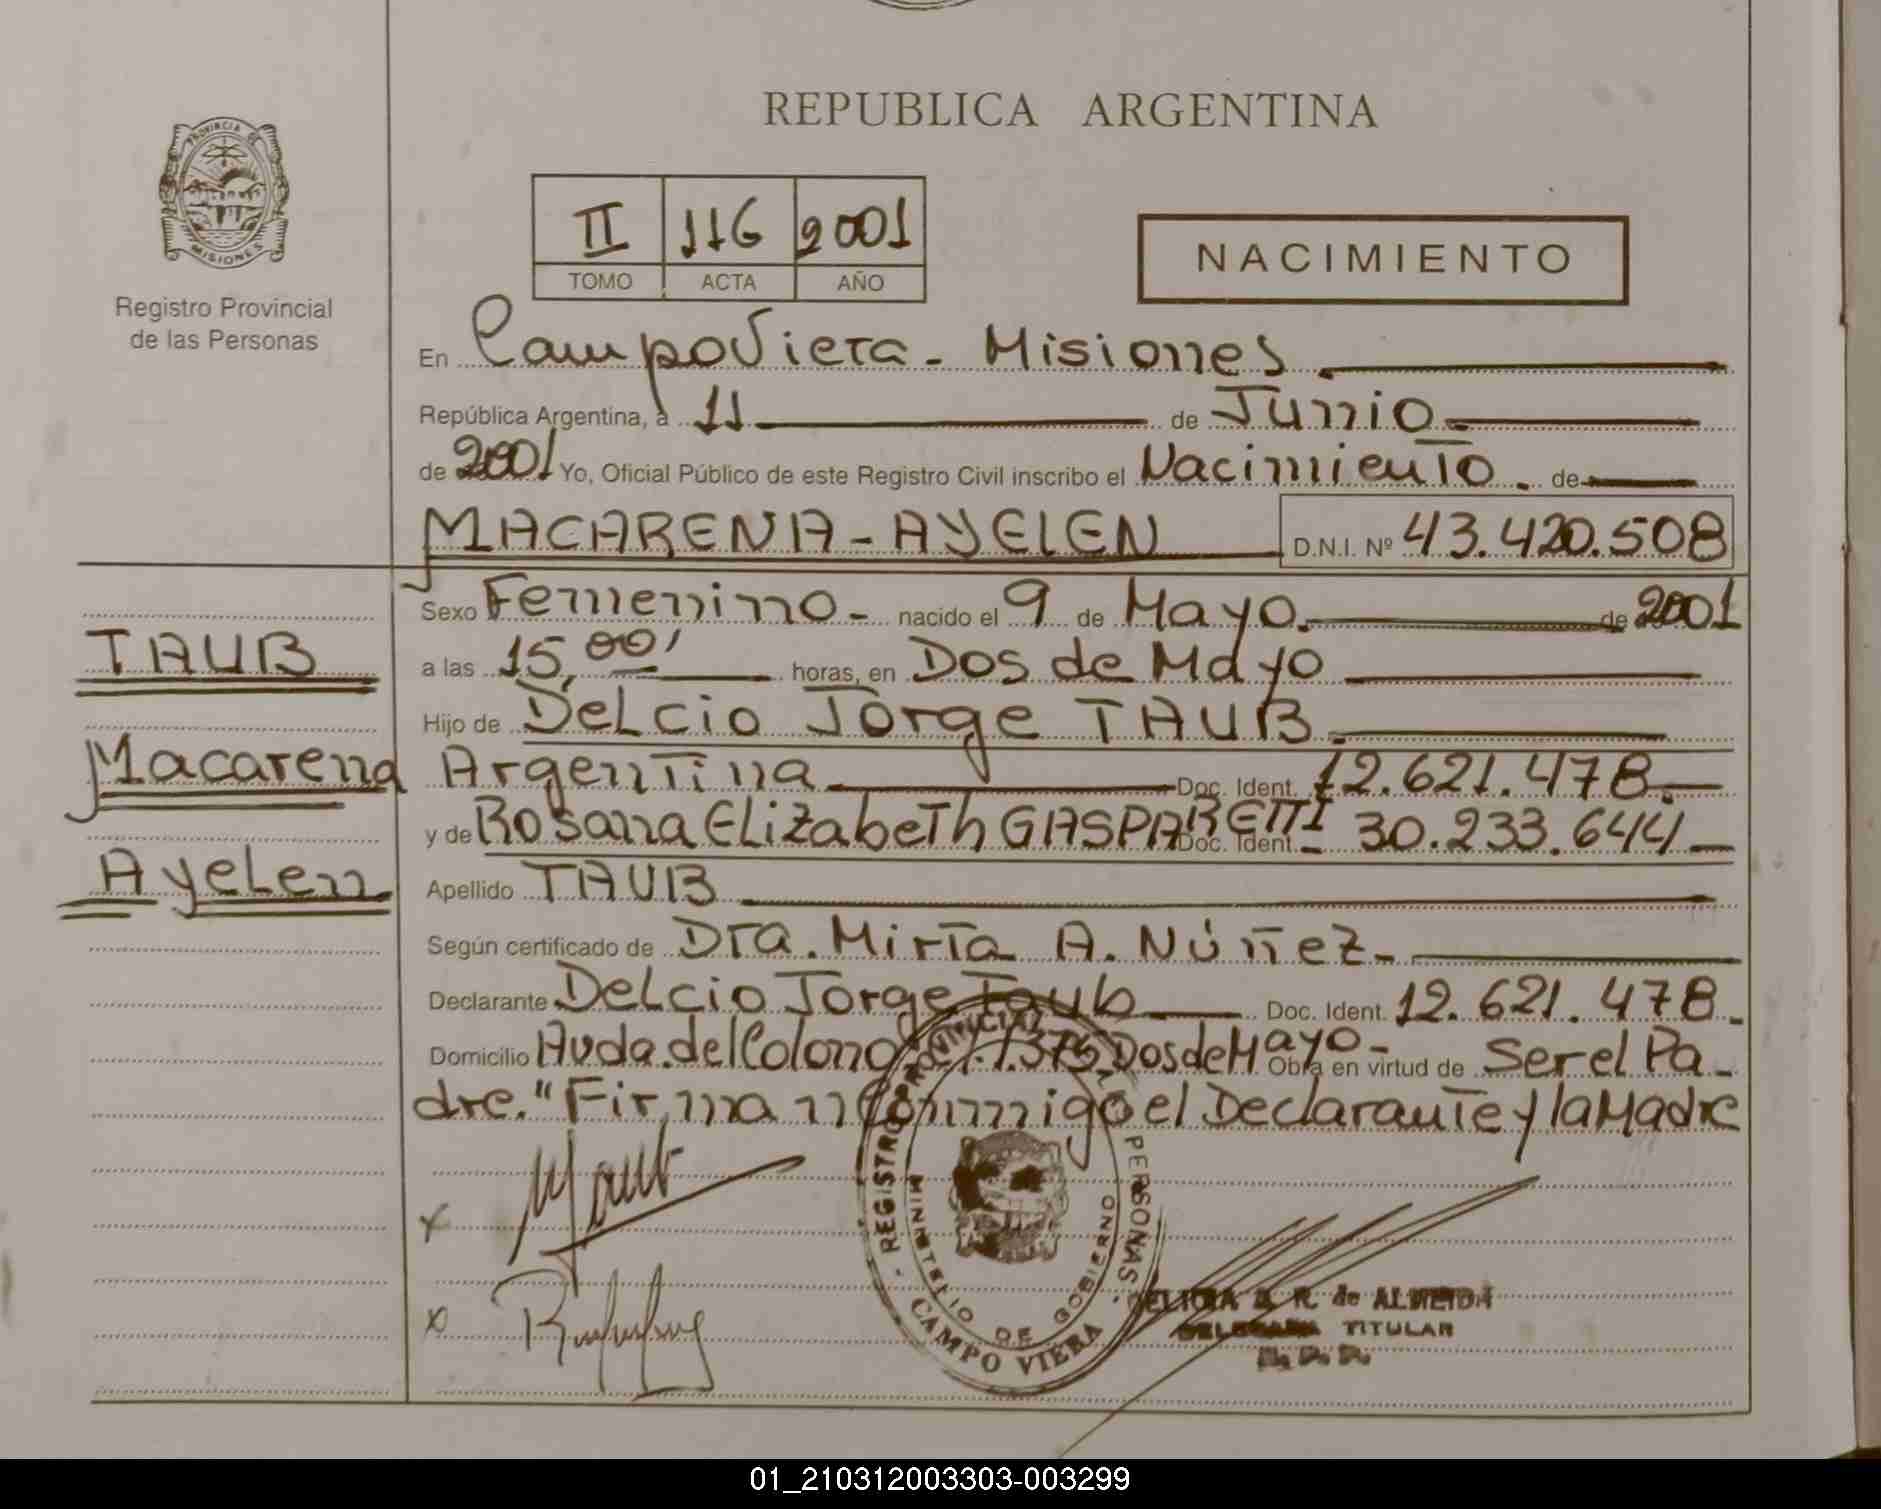 REPUBLICA ARGENTINA
PROVINCIA DE
MISIONES
Registro Provincial
de las Personas
II 116 2001
TOMO ACTA AÑO
NACIMIENTO
En Campo Viera - Misiones
República Argentina, a 11 de Junio
de 2001 Yo, Oficial Público de este Registro Civil inscribo el Nacimiento. de
MACARENA - AYELEN D.N.I. Nº 43.420.508
Sexo Femenino - nacido el 9 de Mayo. de 2001
a las 15,00' horas, en Dos de Mayo
Hijo de Delcio Jorge TAUB.
Argentina Doc. Ident. 12.621.478.
y de Rosana Elizabeth GASPARETTI Doc. Ident. 30.233.644
Apellido TAUB
Según certificado de Dra. Mirta A. Núñez -
Declarante Delcio Jorge Taub Doc. Ident. 12.621.478.
Domicilio Avda. del Colono 1.375 Dos de Mayo - Obra en virtud de Ser el Pa-
dre." Firman conmigo el Declarante y la Madre
TAUB
Macarena
Ayelen
x
x
REGISTRO PROVINCIAL DE LAS PERSONAS
MINISTERIO DE GOBIERNO
CAMPO VIERA
R. de ALMEIDA
DELEGADA TITULAR
01_210312003303-003299